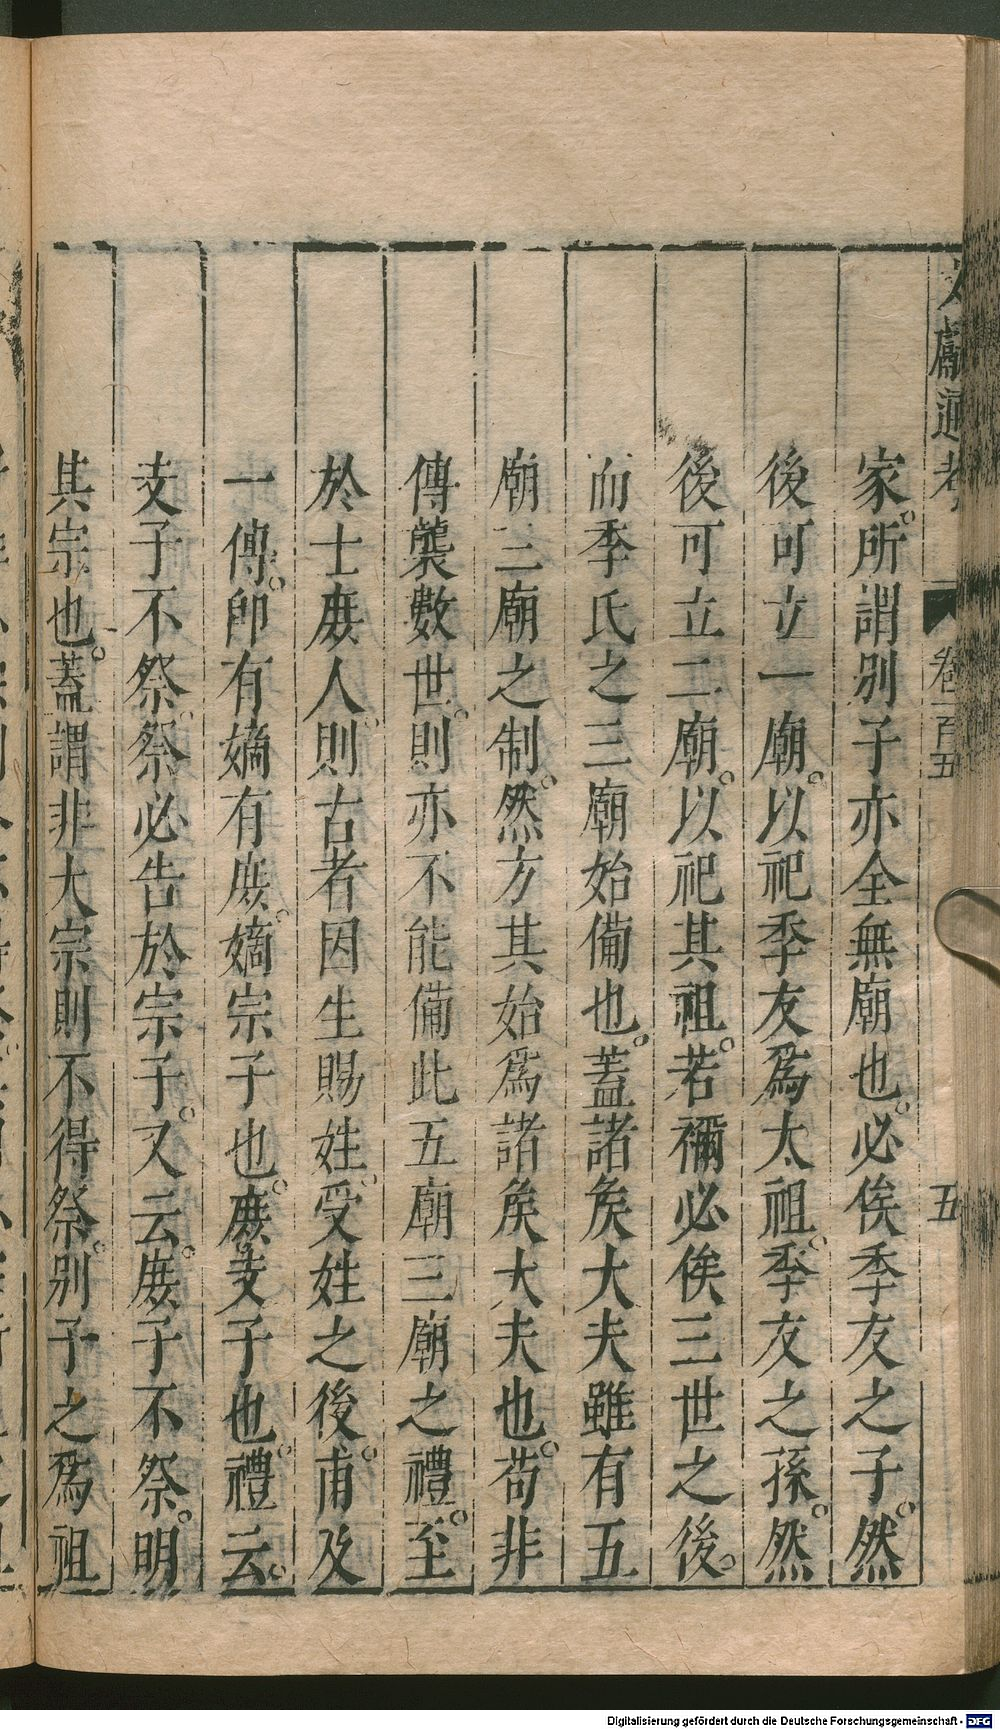 文獻通考 卷一百五 五
家。所謂別子亦全無廟也。必俟季友之子。然
後可立一廟。以祀季友爲太祖。季友之孫。然
後可立二廟。以祀其祖。若禰必俟三世之後。
而季氏之三廟始備也。蓋諸矦大夫雖有五
廟三廟之制。然方其始爲諸矦大夫也。苟非
傳襲數世。則亦不能備此五廟三廟之禮。至
於士庶人。則古者因生賜姓。受姓之後。甫及
一傳。卽有嫡有庶。嫡宗子也。庶支子也。禮云。
支子不祭。祭必告於宗子。又云。庶子不祭。明
其宗也。蓋謂非大宗則不得祭。別子之爲祖
Digitalisierung gefördert durch die Deutsche Forschungsgemeinschaft - DFG